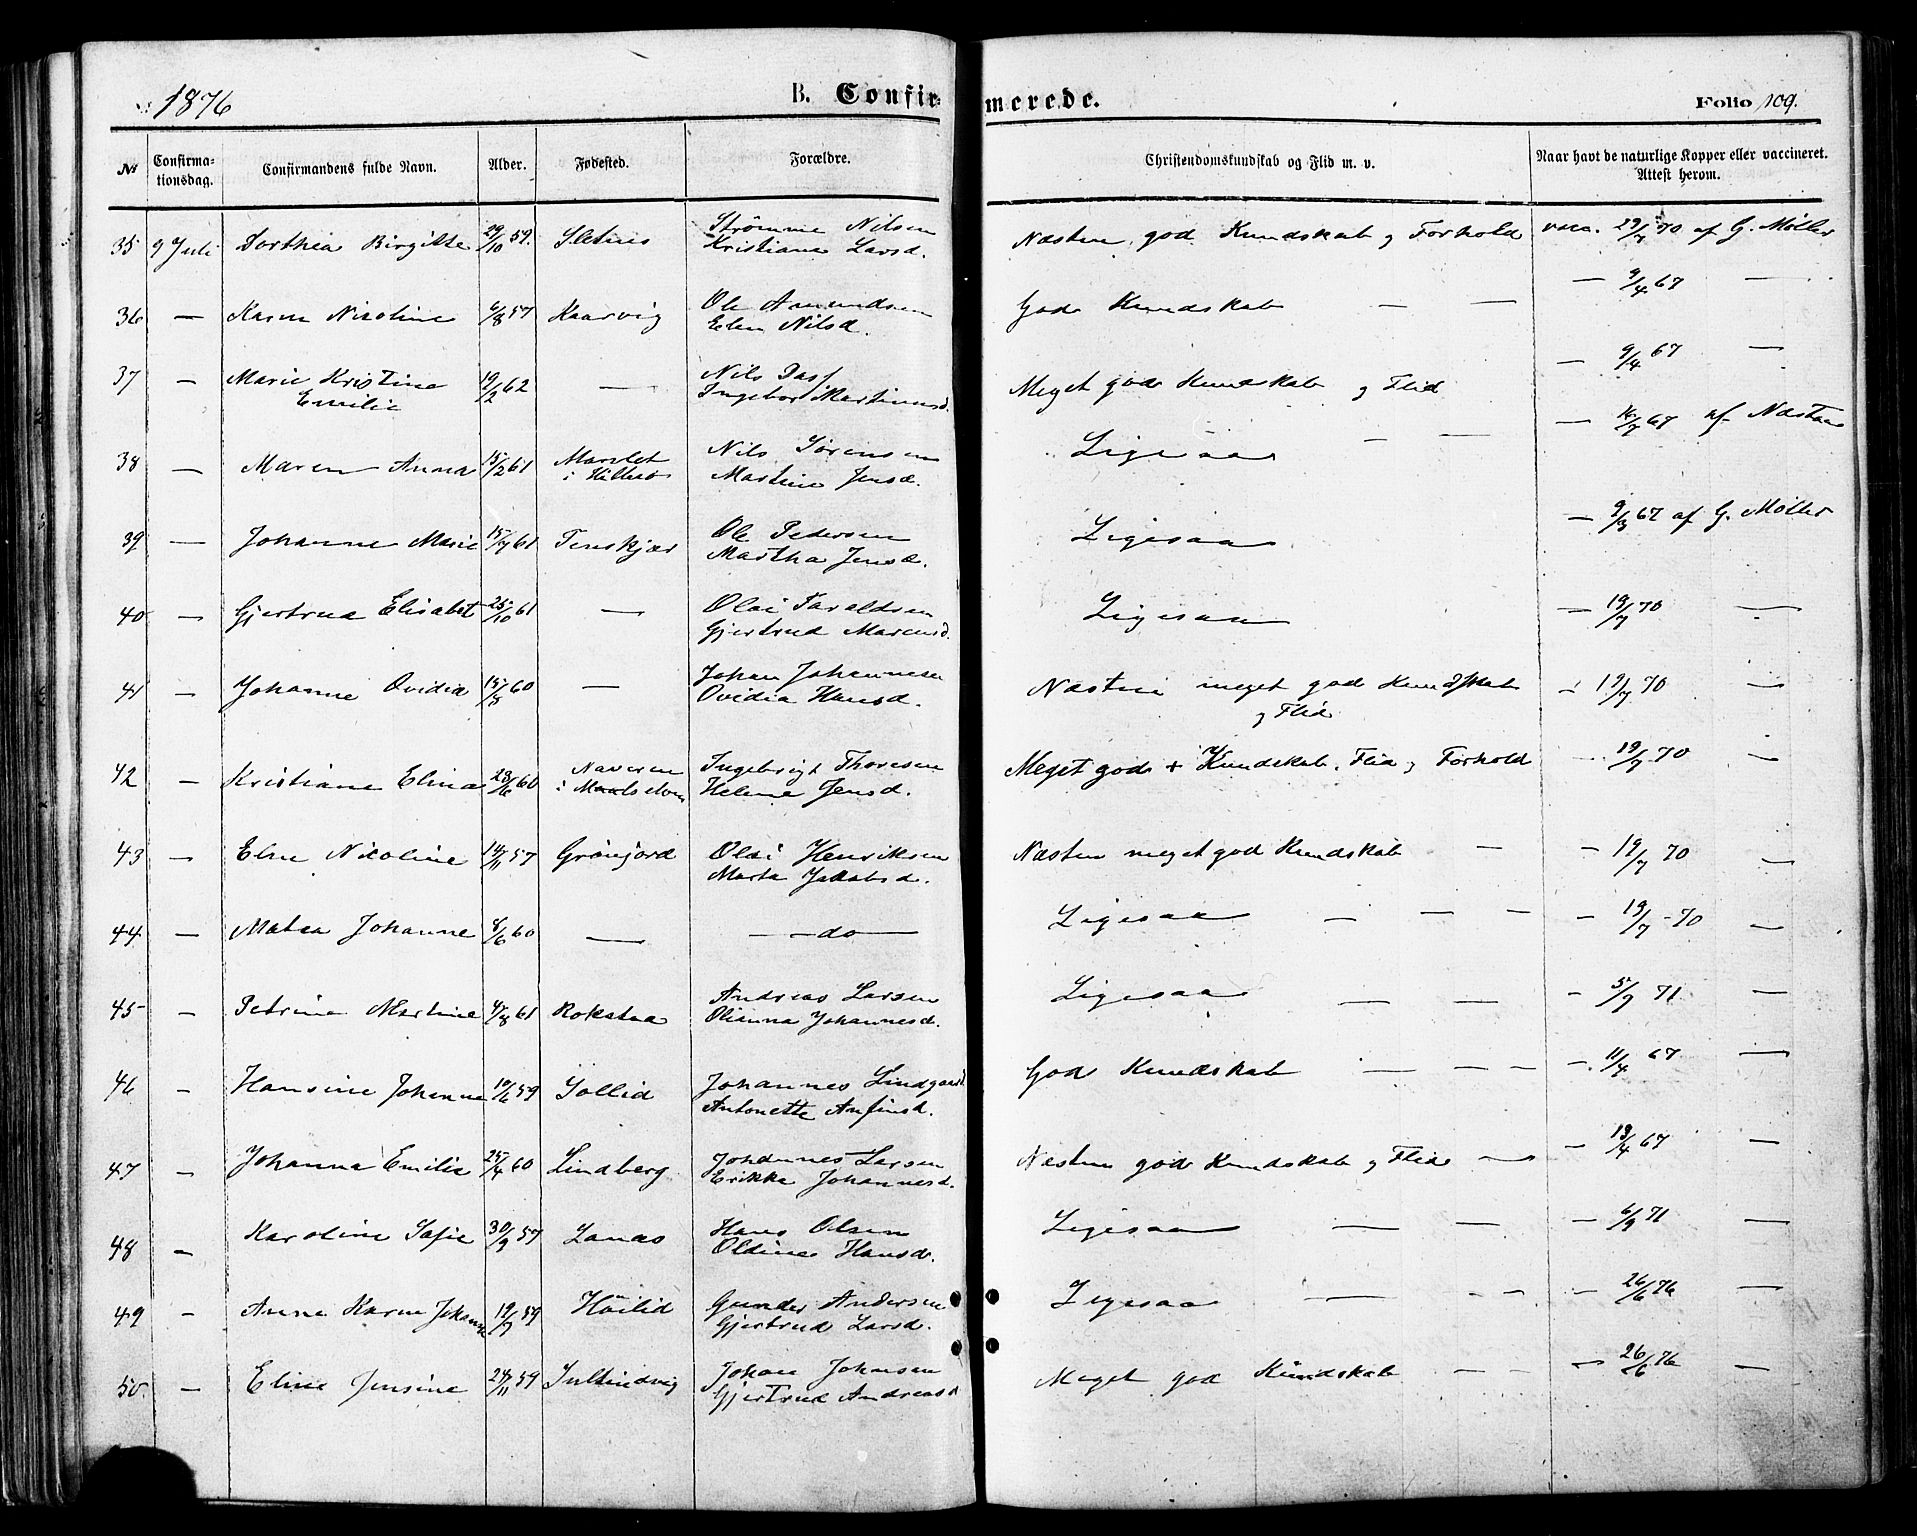 1876 B. Confir- merede. Folio 109.
No Confirma-tionsdag. Confirmandens fulde Navn. Alder. Fødested. Forældre. Christendomskundskab og Flid m. v. Naar havt de naturlige Kopper eller vaccineret. Attest herom.
35 9 Juli Dorthea Birgitte 29/10 59. Sletnes Strømme Nilsen Næsten god Kundskab og Forhold vacc. 29/7 70 af G. Møller
Kristiana Larsd.
36 — Karen Nicoline 6/8 57 Kaarvig Ole Amundsen God Kundskab — — — 9/4 67 —
Elen Nilsd.
37 — Marie Kristine 19/2 62 — Nils Dass Meget god Kundskab og Flid — 9/4 67 —
Emilie Ingebor Martinusd.
38 — Maren Anna 15/2 61 Nils Sørensen Ligesaa — — — 16/7 67 af
i Martine Jensd.
39 — Johanne Marie 15/7 61 Tenskjær Ole Pedersen Ligesaa — 9/3 67 af G. Møller
Martha Jensd.
40 — Gjertrud Elisabet 25/10 61 — Olai Taraldsen Ligesaa — 19/7 70 —
Gjertrud
41 — Johanne Ovidia 15/8 60 — Johan Johannesen Næsten meget god Kundskab — 19/7 70 —
Ovidia Hansd. og Flid
42 — Kristiane Elina 28/6 60 Naveren Ingebrigt Thoresen Meget god + Kundskab, Flid og Forhold — 19/7 70 —
i Maalselven Helene Jensd.
43 — Elen Nicoline 14/11 57 Grønjord Olai Henriksen Næsten meget god Kundskab — — 19/7 70 —
Marta Jakobsd.
44 — Matea Johanne 8/6 60 — — do — Ligesaa — — — — 19/7 70 —
45 — Petrine Martine 4/8 61 Rokstaa Andreas Larsen Ligesaa — — — 5/7 71 —
Olianna Johannesd.
46 — Hansine Johanna 10/6 59 Sollid Johannes Lindgaard God Kundskab — — — — 11/4 67 —
Antonette Anfinsd.
47 — Johanna Emilie 25/4 60 Lindberg Johannes Larsen Næsten god Kundskab og Flid — — 13/4 67 —
Erikka Johannesd.
48 — Karoline Sofie 30/9 57 Lanes Hans Olsen Ligesaa — — — 6/9 71 —
Oldine Hansd.
49 — Anne Karen Johanne 19/7 59 Höilid Gunder Andersen Ligesaa — — — — 26/6 76 —
Gjertrud Larsd.
50. — Eline Jensine 24/11 59 Sultindvig Johan Johnsen Meget god Kundskab — — — 26/6 76 —
Gjertrud Andreasd